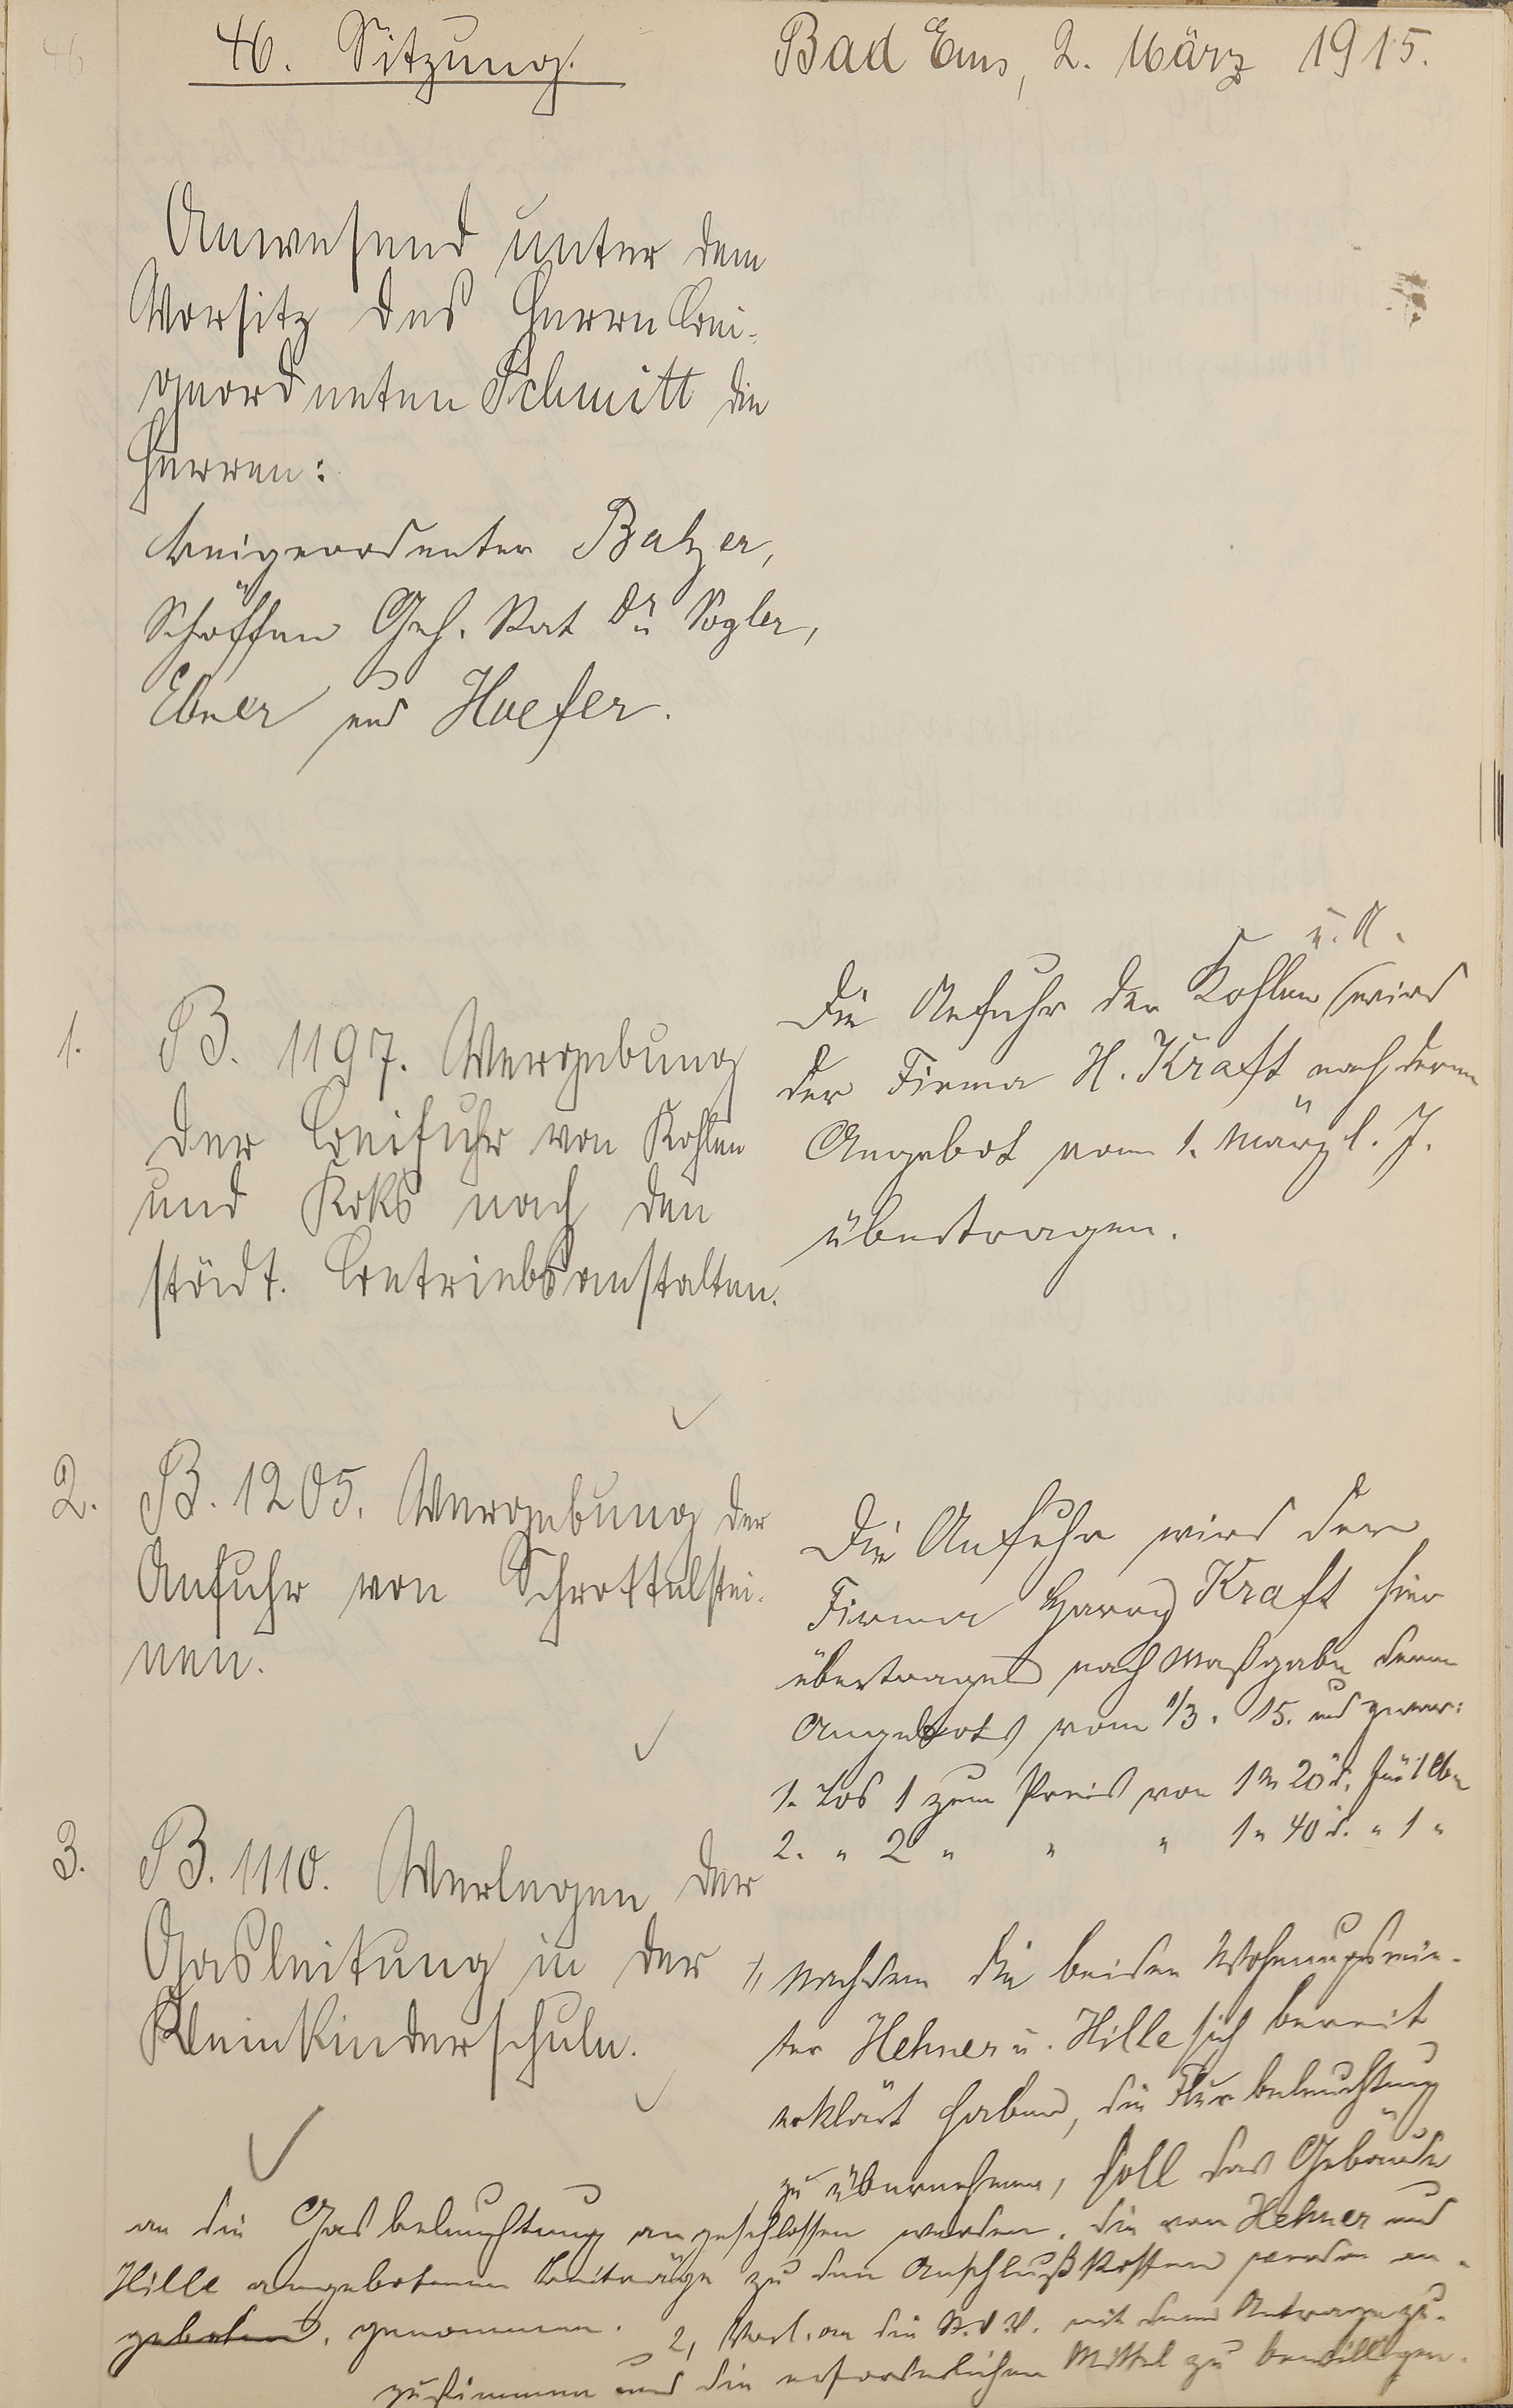 46. Sitzung.
Bad Ems, 2. März 1915.
Anwesend unter dem
Vorsitz des Herrn Bei-
geordneten Schmitt die
Herren:
Beigeordneter Balzer,
Schöffen Geh. Rat Dr. Vogler,
Ebner und Hoefer.
1.
B. 1197. Vergebung
der Beifuhr von Kohlen
und Koks nach den
städt. Betriebsanstalten.
u. K.
Die Anfuhr der Kohlen wird
der Firma H. Kraft nach deren
Angebot vom 1. März l. J.
übertragen.
2.
B. 1205. Vergebung der
Anfuhr von Schrottelstei-
nen.
Die Anfuhr wird der
Firma Harry Kraft hier
übertragen nach Maßgabe deren
Angebots vom 1/3. 15. und zwar:
1. Los 1 zum Preis von 1 M 20 d. für 1 cbm
2. " 2 " " " 1 " 40 d. " 1 "
3.
B. 1110. Verlegen der
Gasleitung in der
Kleinkinderschule.
1, Nachdem die beiden Wohnungsmie-
ter Hehner u. Hille sich bereit
erklärt haben, die Flurbeleuchtung
zu übernehmen, soll das Gebäude
an die Gasbeleuchtung angeschlossen werden. Die von Hehner und
Hille angebotenen Beiträge zu den Anschlußkosten werden an-
geboten. genommen.
2, Vorl. an die St. V. V. mit dem Antrage zu-
zustimmen und die erforderlichen Mittel zu bewilligen.